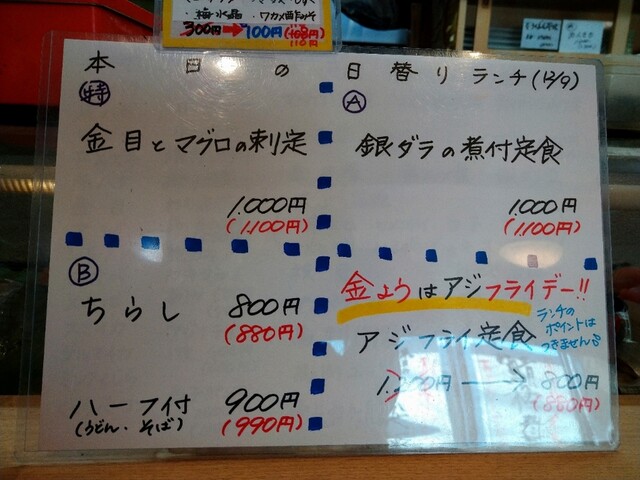 梅水晶・ワカメ酢みそ
300円→100円
110円
本日の日替りランチ(12/9)
特
金目とマグロの刺定
1.000円
(1.100円)
A
銀ダラの煮付定食
1.000円
(1.100円)
B
ちらし 800円
(880円)
ハーフ付 900円
(うどん・そば) (990円)
金ようはアジフライデー!!
アジフライ定食
ランチの
ポイントは
つきません
1.000円→800円
(880円)